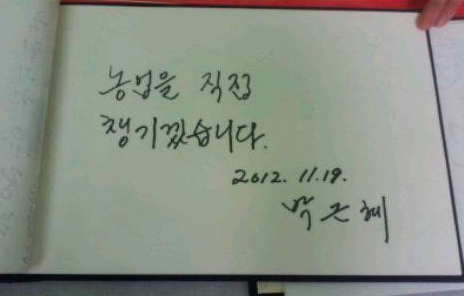 농업을 직접
챙기겠습니다.
2012. 11.19.
박 근 혜